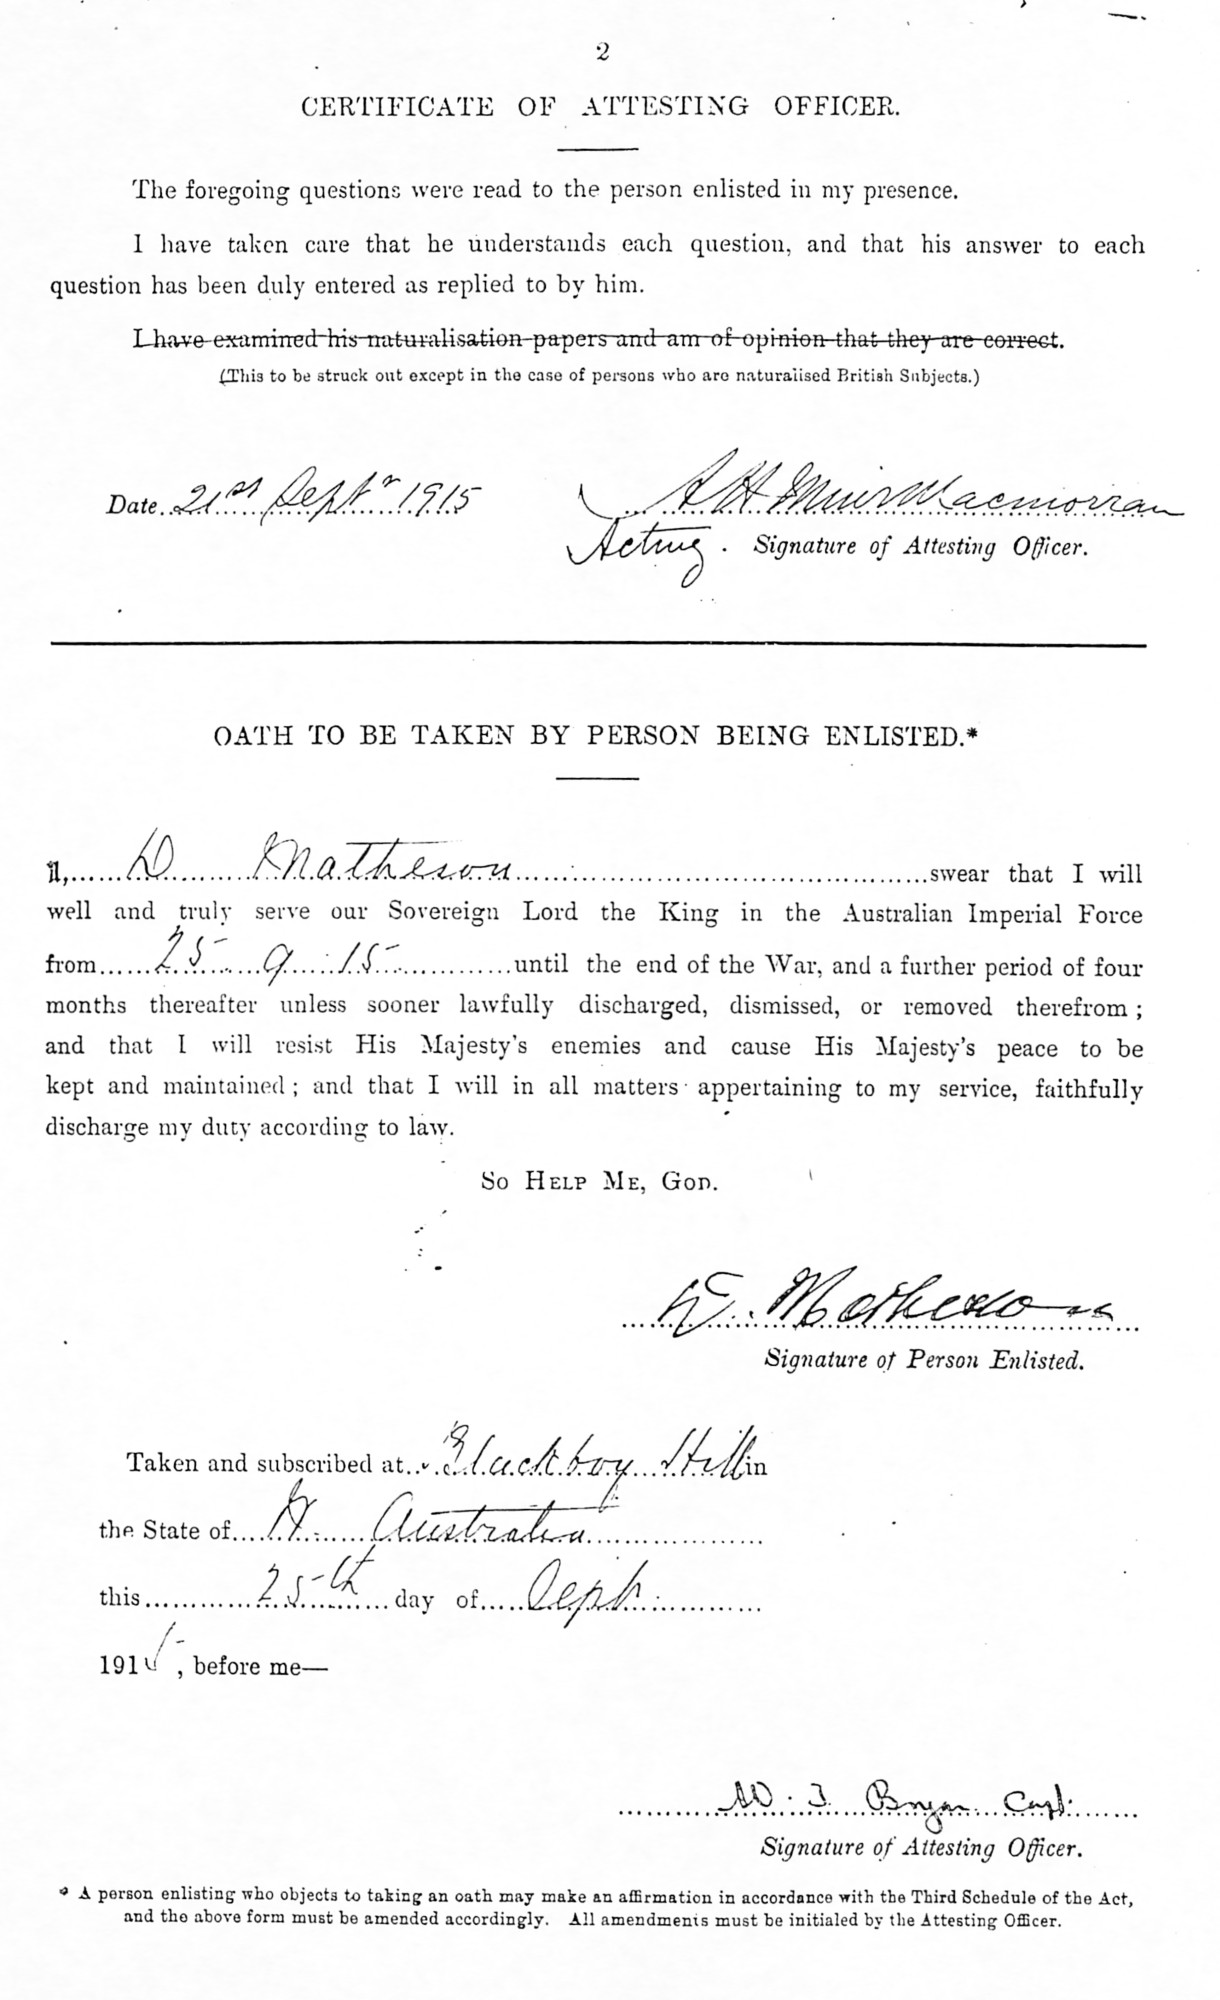 2
CERTIFICATE OF ATTESTING OFFICER.
The foregoing questions were read to the person enlisted in my presence.
I have taken care that he understands each question, and that his answer to each
question has been duly entered as replied to by him.
I have examined his naturalisation papers and am of opinion that they are correct.
(This to be struck out except in the case of persons who are naturalised British Subjects.)
Date 21st Septr 1915 A H Muir Macmorran
Acting. Signature of Attesting Officer.
OATH TO BE TAKEN BY PERSON BEING ENLISTED.*
I, D Matheson swear that I will
well and truly serve our Sovereign Lord the King in the Australian Imperial Force
from 25 9 15 until the end of the War, and a further period of four
months thereafter unless sooner lawfully discharged, dismissed, or removed therefrom;
and that I will resist His Majesty's enemies and cause His Majesty's peace to be
kept and maintained; and that I will in all matters appertaining to my service, faithfully
discharge my duty according to law.
SO HELP ME, GOD.
D. Matheson
Signature of Person Enlisted.
Taken and subscribed at Blackboy Hill in
the State of W. Australia
this 25th day of Sept.
1915, before me—
W. J. Bryan Capt.
Signature of Attesting Officer.
* A person enlisting who objects to taking an oath may make an affirmation in accordance with the Third Schedule of the Act,
and the above form must be amended accordingly. All amendments must be initialed by the Attesting Officer.